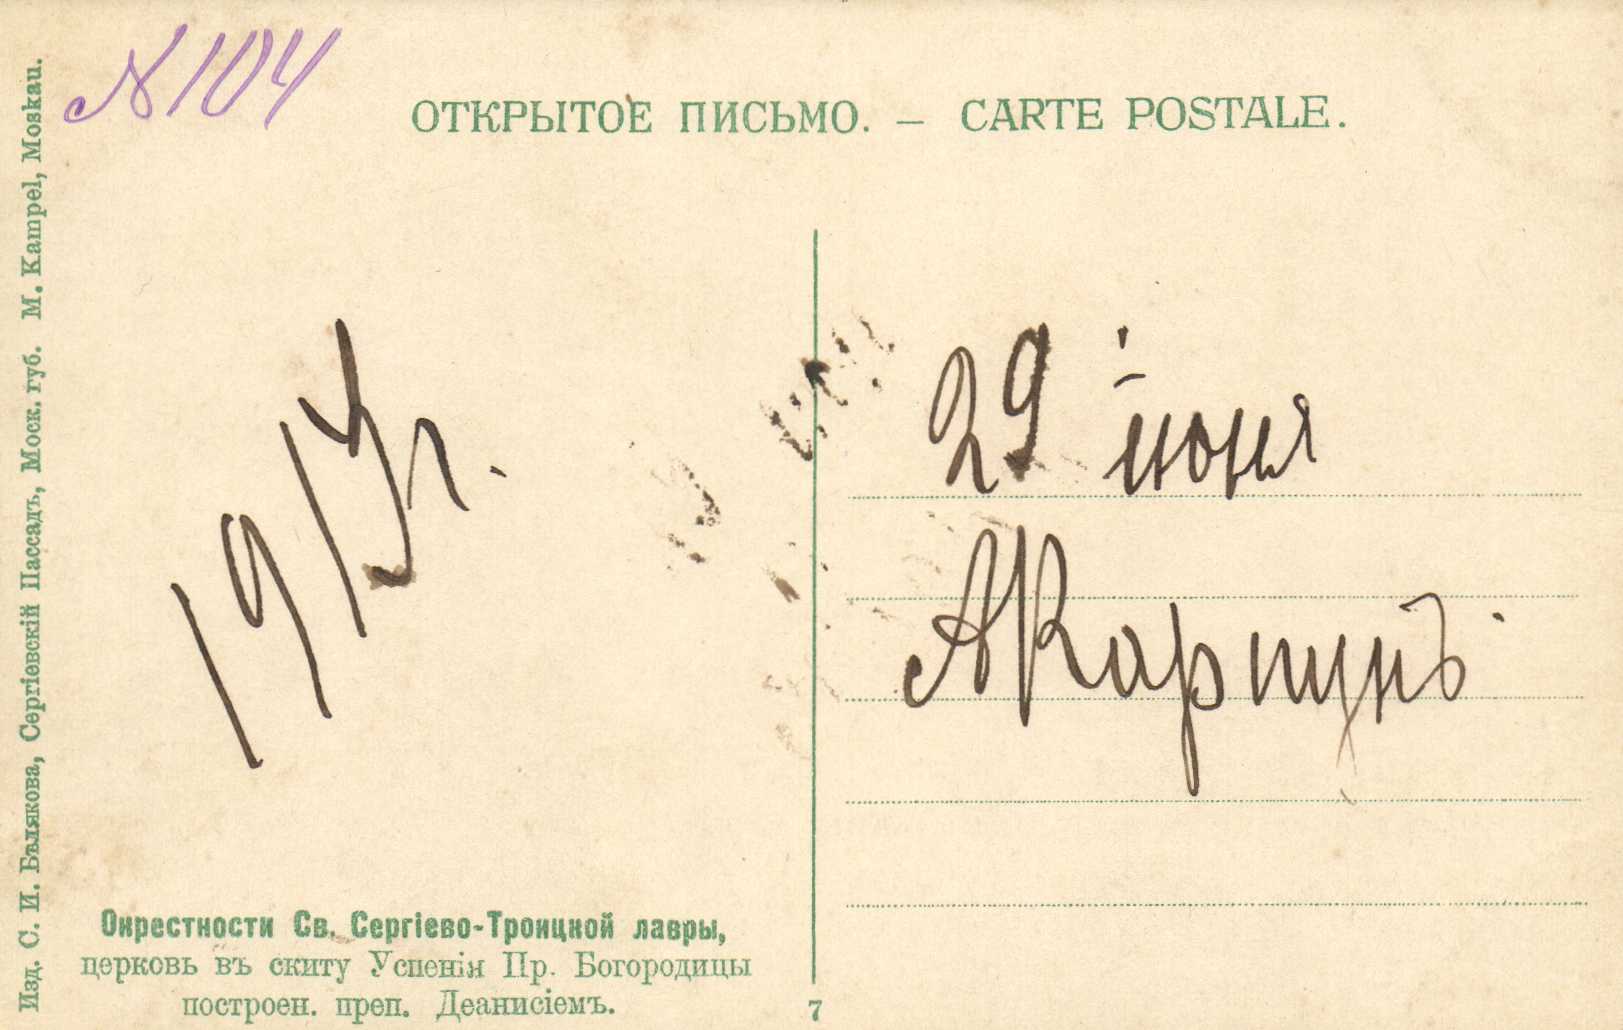 № 104
ОТКРЫТОЕ ПИСЬМО. — CARTE POSTALE.
Изд. С. И. Бѣлякова, Сергіевскій Пассадъ, Моск. губ. M. Kampel, Moskau.
1913 г.
29 іюня
А Карпунъ
Окрестности Св. Сергіево-Троицкой лавры,
церковь въ скиту Успенія Пр. Богородицы
построен. преп. Деанисіемъ.
7